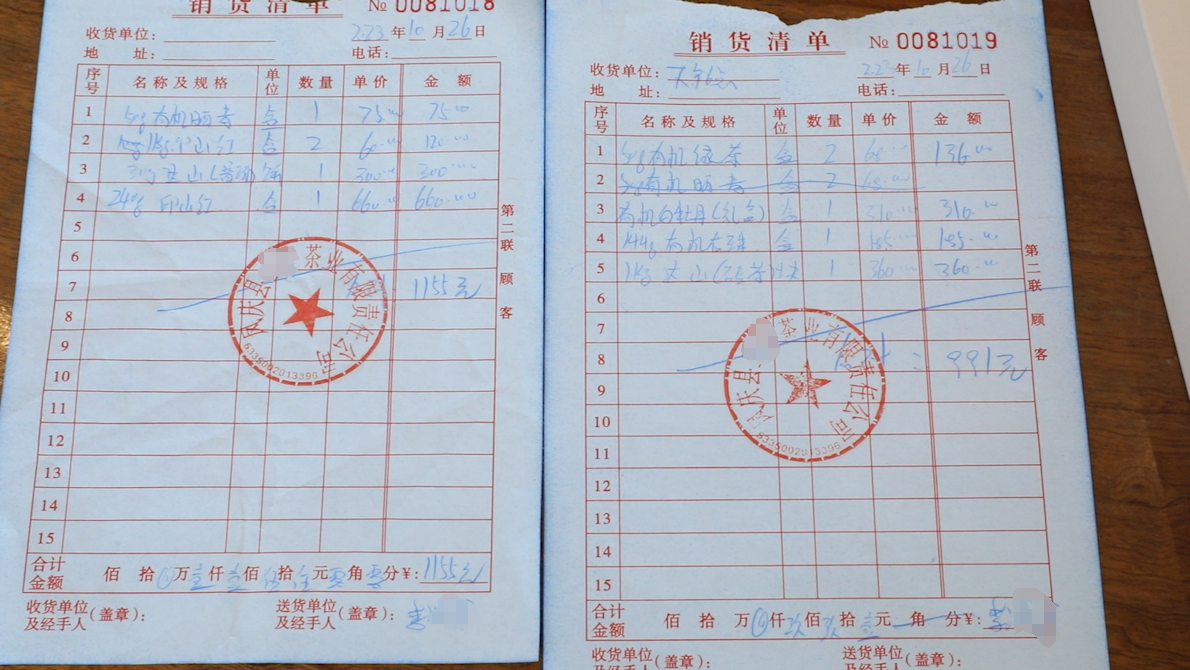 销货清单 № 0081018
收货单位: 223年10月26日
地 址: 电话:
序号 名称及规格 单位 数量 单价 金额
1 有机 盒 1 75.00 75.00
2 山红 盒 2 60.00 120.00
3 1 300.00 300.00
4 24g 印山红 盒 1 660.00 660.00
5
6
7 1155元
8
9
10
11
12
13
14
15
第二联 顾客
茶业有限责任公司
凤庆县
5335002013396
合计金额 佰 拾 万壹仟壹佰伍拾伍元零角零分¥: 1155元
收货单位及经手人(盖章): 送货单位及经手人(盖章): 李
销货清单 № 0081019
收货单位: 223年10月26日
地 址: 电话:
序号 名称及规格 单位 数量 单价 金额
1 有机绿茶 盒 2 68.00 136.00
2 有机 盒 2 68.00
3 有机白牡丹(礼盒) 盒 1 310.00 310.00
4 144g 有机龙珠 盒 1 185.00 185.00
5 1kg 1 360.00 360.00
6
7
8 : 991元
9
10
11
12
13
14
15
第二联 顾客
凤庆县 茶业有限责任公司
5335002013396
合计金额 佰 拾 万 仟玖佰玖拾壹元 角 分¥: 李
收货单位及经手人(盖章): 送货单位及经手人(盖章):